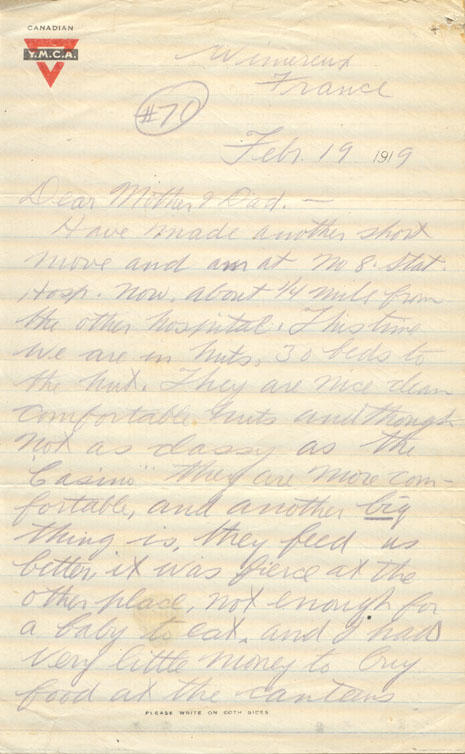 CANADIAN
Y.M.C.A.
Wimereux
France
#70
Feb. 19 1919
Dear Mother & Dad. —
Have made another short
move and am at No 8. Stat.
Hosp. now, about 1/4 mile from
the other hospital. This time
we are in huts, 30 beds to
the hut. They are nice clean
comfortable huts and though
not as classy as the
"Casino" they are more com-
fortable, and another big
thing is, they feed us
better, it was fierce at the
other place, not enough for
a baby to eat, and I had
very little money to buy
food at the canteens.
PLEASE WRITE ON BOTH SIDES